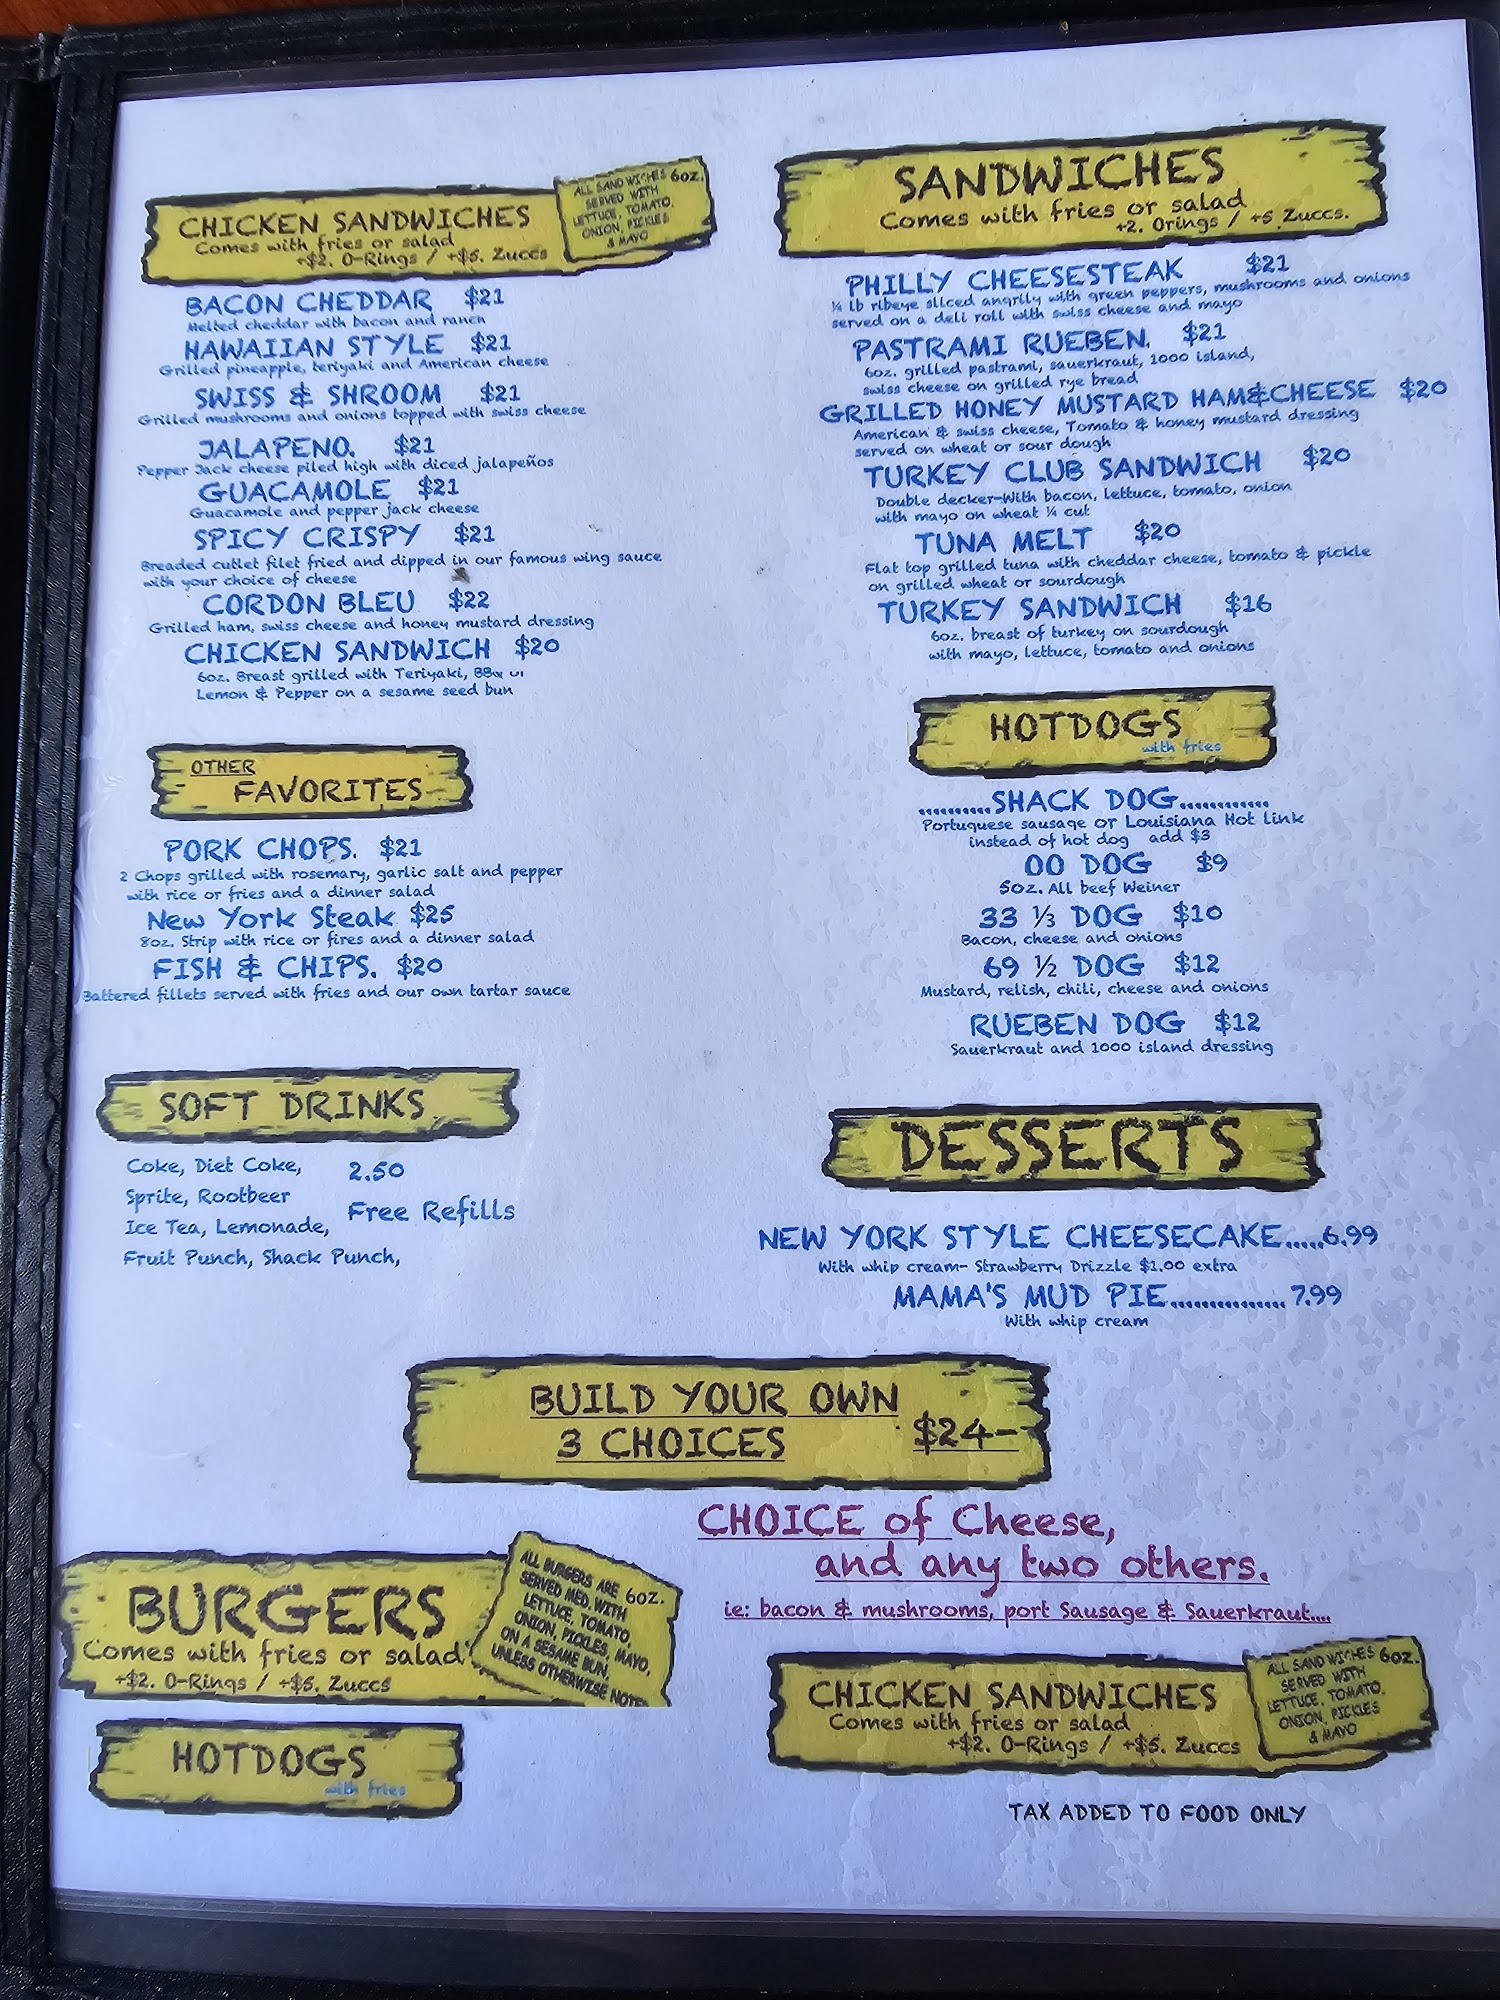 CHICKEN SANDWICHES
Comes with fries or salad
+$2. O-Rings / +$5. Zuccs
ALL SANDWICHES 6oz.
SERVED WITH
LETTUCE, TOMATO,
ONION, PICKLES
& MAYO
BACON CHEDDAR $21
Melted cheddar with bacon and ranch
HAWAIIAN STYLE $21
Grilled pineapple, teriyaki and American cheese
SWISS & SHROOM $21
Grilled mushrooms and onions topped with swiss cheese
JALAPENO. $21
Pepper Jack cheese piled high with diced jalapeños
GUACAMOLE $21
Guacamole and pepper jack cheese
SPICY CRISPY $21
Breaded cutlet filet fried and dipped in our famous wing sauce
with your choice of cheese
CORDON BLEU $22
Grilled ham, swiss cheese and honey mustard dressing
CHICKEN SANDWICH $20
6oz. Breast grilled with Teriyaki,
Lemon & Pepper on a sesame seed bun
OTHER
FAVORITES
PORK CHOPS. $21
2 Chops grilled with rosemary, garlic salt and pepper
with rice or fries and a dinner salad
New York Steak $25
8oz. Strip with rice or fires and a dinner salad
FISH & CHIPS. $20
Battered fillets served with fries and our own tartar sauce
SOFT DRINKS
Coke, Diet Coke, 2.50
Sprite, Rootbeer
Free Refills
Ice Tea, Lemonade,
Fruit Punch, Shack Punch,
SANDWICHES
Comes with fries or salad
+2. Orings / +5 Zuccs.
PHILLY CHEESESTEAK $21
¼ lb ribeye sliced angrily with green peppers, mushrooms and onions
served on a deli roll with swiss cheese and mayo
PASTRAMI RUEBEN. $21
6oz. grilled pastrami, sauerkraut, 1000 island,
swiss cheese on grilled rye bread
GRILLED HONEY MUSTARD HAM&CHEESE $20
American & swiss cheese, Tomato & honey mustard dressing
served on wheat or sour dough
TURKEY CLUB SANDWICH $20
Double decker-With bacon, lettuce, tomato, onion
with mayo on wheat ¼ cut
TUNA MELT $20
Flat top grilled tuna with cheddar cheese, tomato & pickle
on grilled wheat or sourdough
TURKEY SANDWICH $16
6oz. breast of turkey on sourdough
with mayo, lettuce, tomato and onions
HOTDOGS
with fries
..........SHACK DOG............
Portuguese sausage or Louisiana Hot link
instead of hot dog add $3
00 DOG $9
5oz. All beef Weiner
33 ⅓ DOG $10
Bacon, cheese and onions
69 ½ DOG $12
Mustard, relish, chili, cheese and onions
RUEBEN DOG $12
Sauerkraut and 1000 island dressing
DESSERTS
NEW YORK STYLE CHEESECAKE.....6.99
With whip cream- Strawberry Drizzle $1.00 extra
MAMA'S MUD PIE................ 7.99
With whip cream
BUILD YOUR OWN
3 CHOICES $24-
CHOICE of Cheese,
and any two others.
ie: bacon & mushrooms, port Sausage & Sauerkraut....
BURGERS
Comes with fries or salad
+$2. O-Rings / +$5. Zuccs
ALL BURGERS ARE 6oz.
SERVED MED. WITH
LETTUCE, TOMATO,
ONION, PICKLES, MAYO,
ON A SESAME BUN,
UNLESS OTHERWISE
HOTDOGS
with fries
CHICKEN SANDWICHES
Comes with fries or salad
+$2. O-Rings / +$5. Zuccs
ALL SANDWICHES 6oz.
SERVED WITH
LETTUCE, TOMATO,
ONION, PICKLES
& MAYO
TAX ADDED TO FOOD ONLY